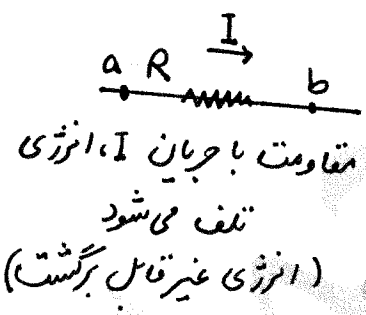 I
a R b
مقاومت با جریان I، انرژی
تلف می‌شود
(انرژی غیر قابل برگشت)